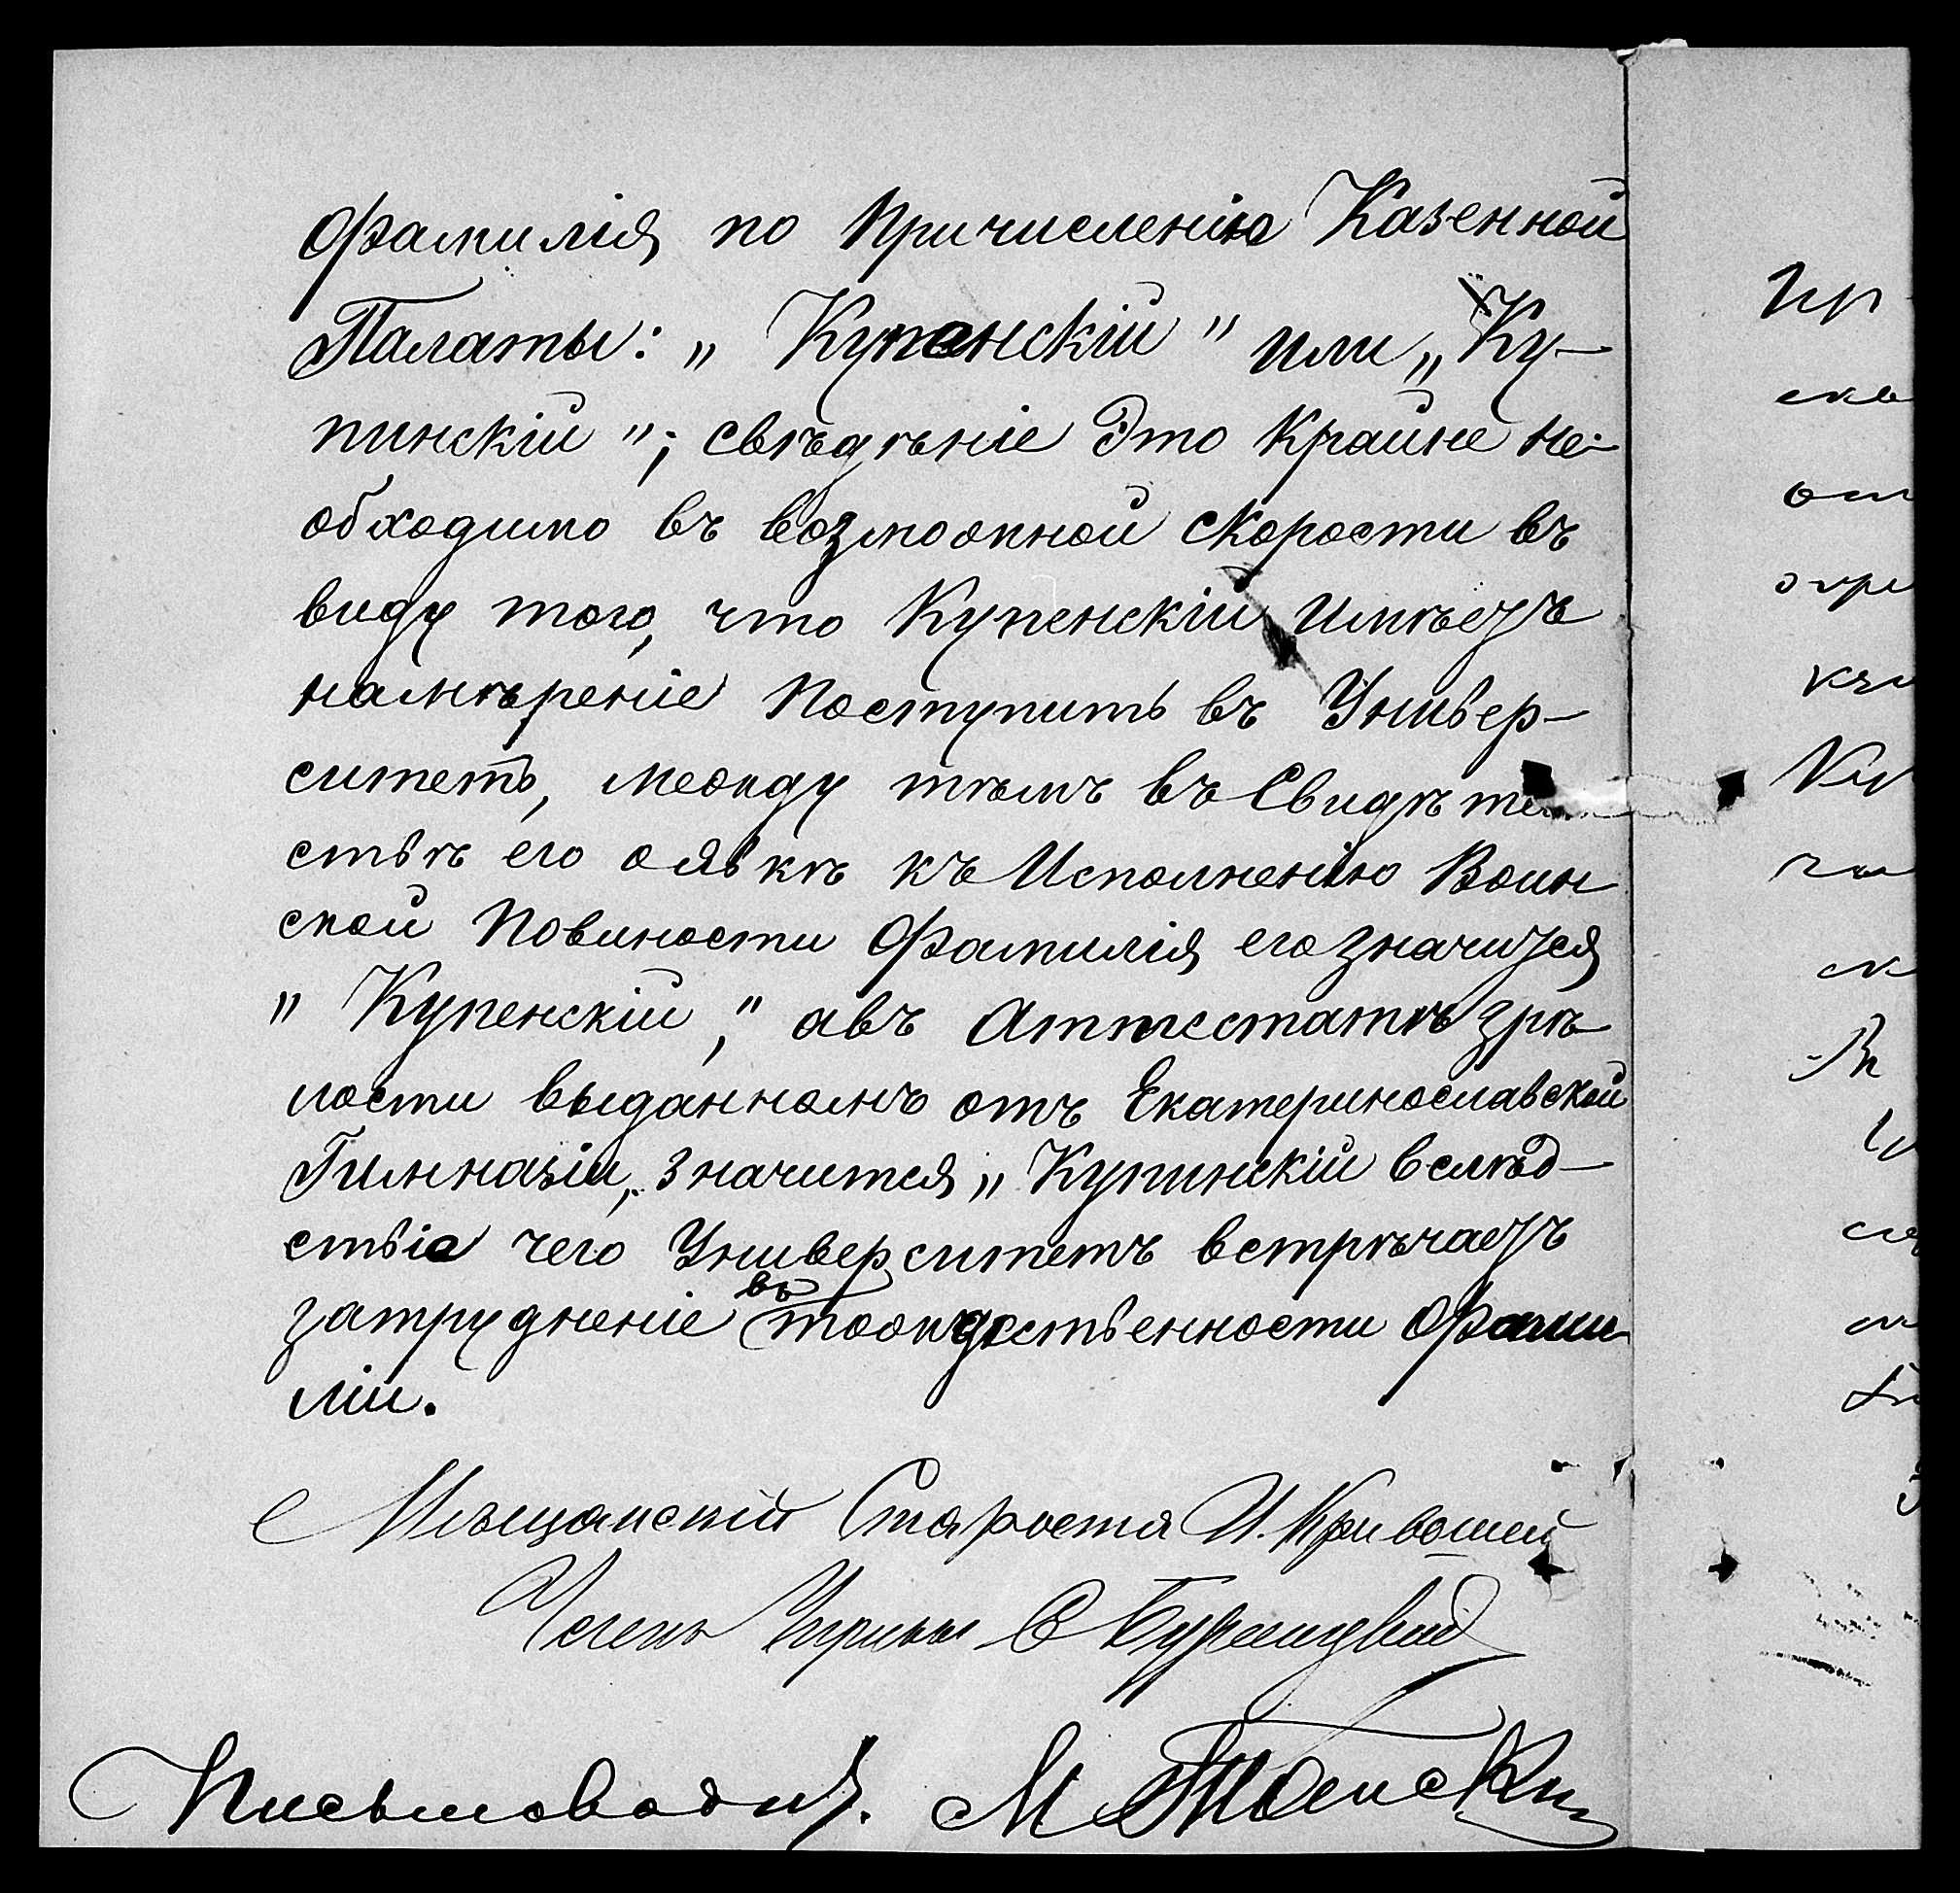 фамилія по причисленію Казенной
Палаты: „Купенскій" или „Ку-
пинскій"; свѣдѣніе Это крайне не-
обходимо въ возможной скорости въ
виду того, что Купенскій имѣетъ
намѣреніе поступить въ Универ-
ситетъ, между тѣмъ въ Свидѣтел
ствѣ его о явкѣ къ Исполненію Воин
ской Повиности фамилія его значится
"Купенскій," а въ Аттестатѣ зрѣ
лости выданномъ отъ Екатеринославской
Гимназіи, значится „Купинскій вслѣд-
ствіе чего Университетъ встрѣчаетъ
затрудненіе въ тождественности фами
ліи.
Мѣщанскій Староста И. Кривошей
Членъ Управы
Письмоводит.